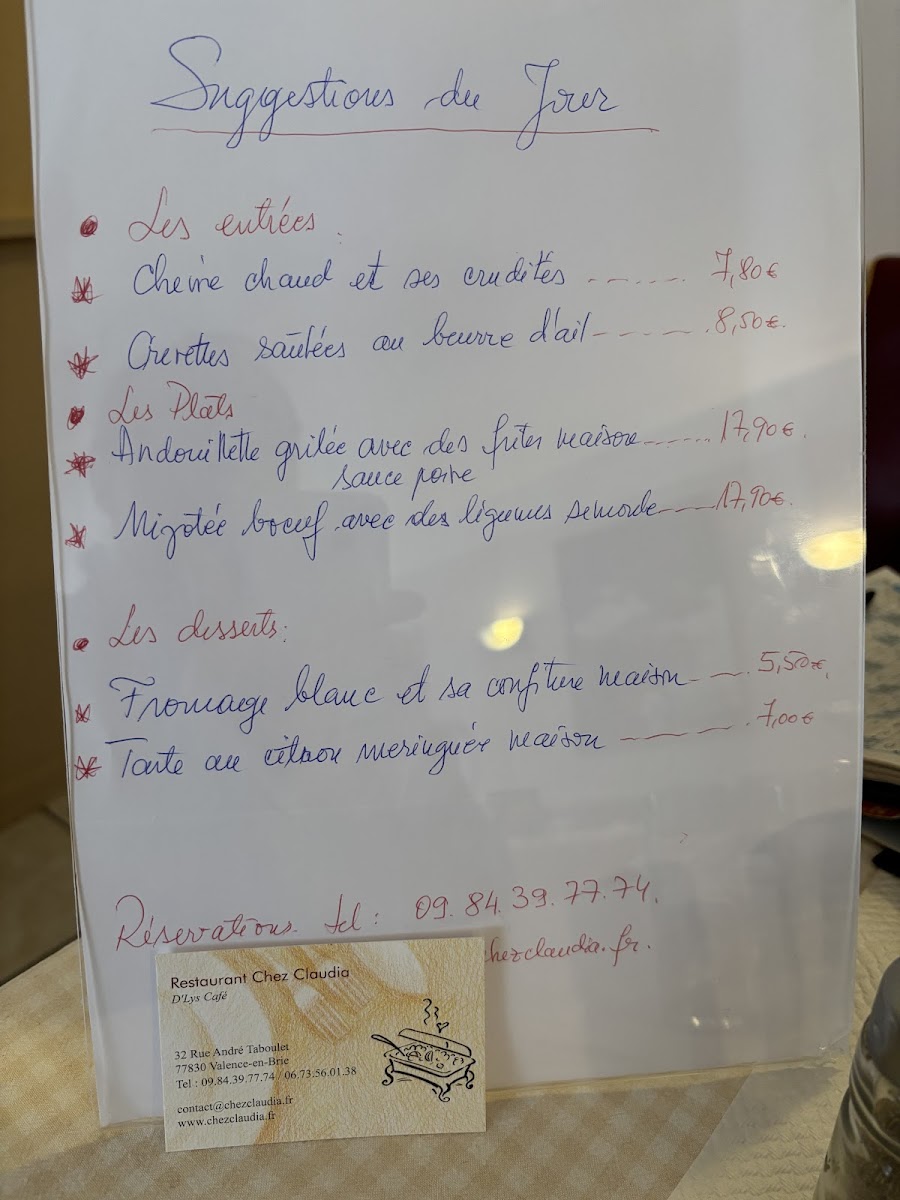 Suggestions du Jour
Les entrées.
Chèvre chaud et ses crudités ------- 7,80€
Crevettes sautées au beurre d'ail ------- 8,50€.
Les Plats
Andouillette grilée avec des frites maison ------- 17,90€.
sauce poivre
Mijotée boeuf avec des légumes ------- 17,90€.
Les desserts:
Fromage blanc et sa confiture maison ------- 5,50€.
Tarte au citron meringuée maison ------- 7,00€
Réservations tel : 09.84.39.77.74.
chezclaudia.fr.
Restaurant Chez Claudia
D'Lys Café
32 Rue André Taboulet
77830 Valence-en-Brie
Tel : 09.84.39.77.74 / 06.73.56.01.38
contact@chezclaudia.fr
www.chezclaudia.fr